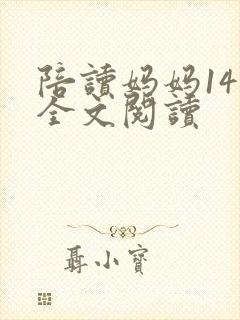 陪讀媽媽14
全文閱讀
聶小寶